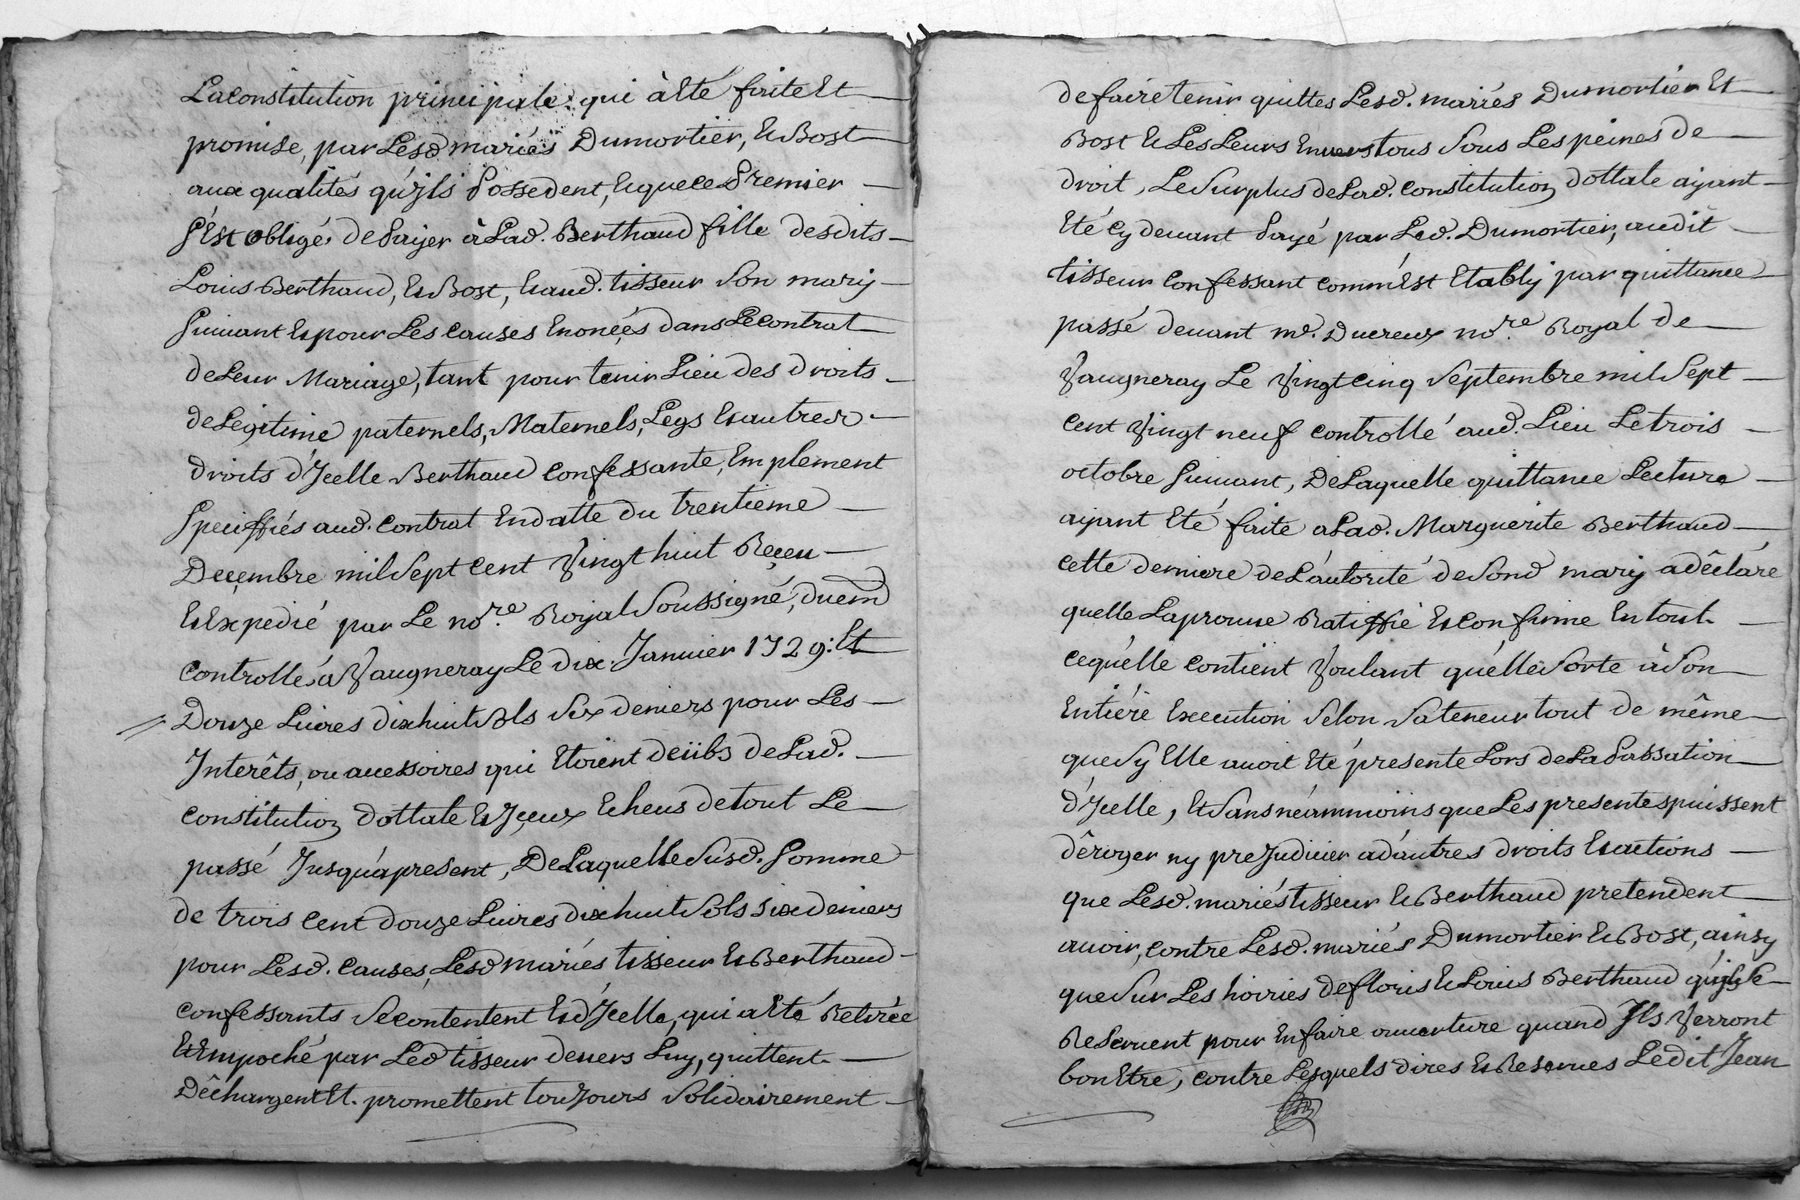 La constitution principale qui à Eté faite Et
promise, par Lesd mariés Dumortier, Et Bost
aux qualités qu'jls possedent, Et que ce premier
s'Est obligé de payer à Lad. Berthaud fille desdits
Louis Berthaud, Et Bost, Et aud. tisseur son mary
suivant Et pour Les causes Enoncées dans Le contrat
de Leur Mariage, tant pour tenir Lieu des droits
de Legitime paternels, Maternels, Legs Et autres
droits d'Jcelle Berthaud confessante, Emplement
speciffiés aud. contrat En datte du trentieme
Decembre mil sept cent vingt huit Reçeu
Et Expedié par Le no.re Royal soussigné, duem
controllé à Vaugneray Le dix Janvier 1729: Et
Douze Livres dixhuit sols six deniers pour Les
Interêts, ou accessoires qui Etoient deübs de Lad.
constitution dottale Et Jçeux Echeus de tout Le
passé Jusqu'apresent, De Laquelle susd. somme
de trois cent douze Livres dixhuit sols six deniers
pour Lesd. causes, Lesd mariés tisseur Et Berthaud
confessants se contentent Et d'Jcelle, qui a Eté Retirée
Et Empoché par Led tisseur devers Luy, quittent
Dêchargent Et. promettent toujours solidairement
de faire tenir quittes Lesd. mariés Dumortier Et
Bost Et Les Leurs Envers tous sous Les peines de
droit, Le surplus de Lad. constitution dottale ayant
Eté cy devant payé par Led. Dumortier, audit
tisseur confessant comm'Est Etably par quittance
passé devant me. Ducreux no.re Royal de
Vaugneray Le vingt cinq septembre mil sept
cent vingt neuf controllé aud. Lieu Le trois
octobre suivant, De Laquelle quittance Lecture
ayant Eté faite a Lad. Marguerite Berthaud
cette derniere de L'autorité de sond mary a dêclaré
quelle L'aprouve Ratiffie Et confirme En tout
ce qu'elle contient voulant qu'elle sorte à son
Entiére Execution selon sa teneur tout de même
que sy Elle avoit Eté présente Lors de La passation
d'Jcelle, Et sans néammoins que Les presentes puissent
dêroger ny prejudicier a d'autres droits Et actions
que Lesd. mariés tisseur Et Berthaud pretendent
avoir, contre Lesd. mariés Dumortier Et Bost, ainsy
que sur Les hoiries de floris Et Louis Berthaud qu'jls se
Reservent pour En faire ouverture quand Jls verront
bon Etre, contre Lesquels dires Et Reserves Ledit Jean